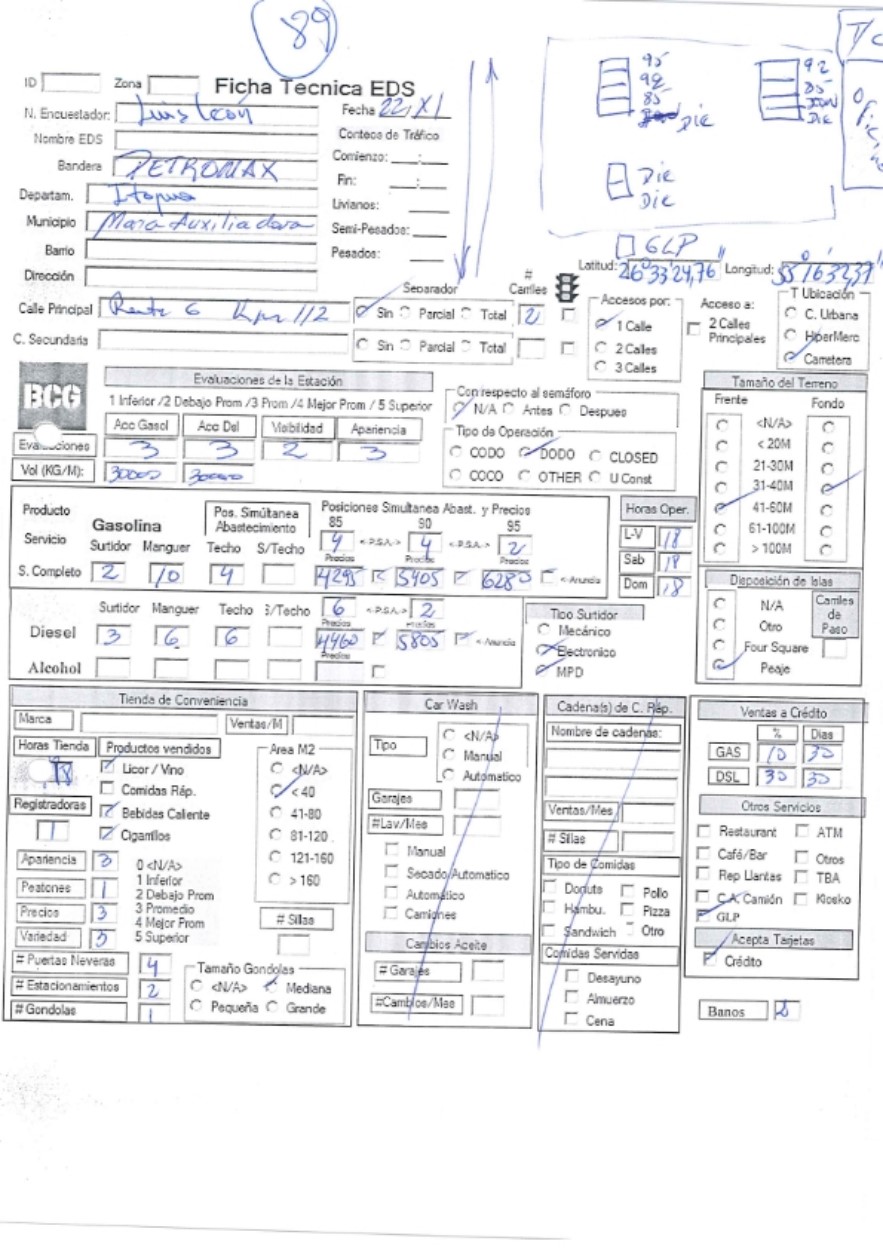 89
T/C
95
92
85
Die
92
85
Die
Die
Die
GLP
ID Zona Ficha Tecnica EDS
N. Encuestador: Luis León Fecha 22/XI
Nombre EDS Conteoa de Tráfico
Bandera PETROMAX Comienzo: __:__
Fin: __:__
Departam. Itapua Livianos:
Municipio Maria Auxiliadora Semi-Pesados:
Barrio Pesados:
Dirección
Latitud: 26°33'24,76" Longitud: 55°16'32,37"
Calle Principal Ruta 6 Km 112 Separador Sin Parcial Total # Carriles 2
C. Secundaria Sin Parcial Total
Accesos por: 1 Calle 2 Calles 3 Calles
Acceso a: 2 Calles Principales
T Ubicación C. Urbana HiperMerc Carretera
BCG
Evaluaciones de la Estación
1 Inferior /2 Debajo Prom /3 Prom /4 Mejor Prom / 5 Superior
Acc Gasol Acc Dsl Visibilidad Apariencia
Evaluaciones 3 3 2 3
Vol (KG/M): 30000 30000
Con respecto al semáforo
N/A Antes Despues
Tipo de Operación
CODO DODO CLOSED
COCO OTHER U Const
Tamaño del Terreno
Frente Fondo
<N/A>
< 20M
21-30M
31-40M
41-60M
61-100M
> 100M
Producto Gasolina Pos. Simúltanea Abastecimiento Posiciones Simultanea Abast. y Precios
85 90 95
Servicio Surtidor Manguer Techo S/Techo 4 <-P.S.A.-> 4 <-P.S.A.-> 2
Precios Precios Precios
S. Completo 2 10 4 4295 5405 6280 <-Anuncia
Horas Oper.
L-V 18
Sab 18
Dom 18
Surtidor Manguer Techo S/Techo 6 <-P.S.A.-> 2
Precios Precios
Diesel 3 6 6 4460 5805 <-Anuncia
Precios
Alcohol
Tipo Surtidor
Mecánico
Electronico
MPD
Disposición de Islas
N/A
Otro
Four Square
Peaje
Carriles de Paso
Tienda de Conveniencia
Marca Ventas/M
Horas Tienda 18
Productos vendidos
Licor / Vino
Comidas Ráp.
Bebidas Caliente
Cigarrillos
Registradoras 1
Area M2
<N/A>
< 40
41-80
81-120
121-160
> 160
Apariencia 3
Peatones 1
Precios 3
Variedad 3
0 <N/A>
1 Inferior
2 Debajo Prom
3 Promedio
4 Mejor Prom
5 Superior
# Sillas
# Puertas Neveras 4
# Estacionamientos 2
# Gondolas 1
Tamaño Gondolas
<N/A> Mediana
Pequeña Grande
Car Wash
Tipo
<N/A>
Manual
Automatico
Garajes
#Lav/Mes
Manual
Secado Automatico
Automático
Camiones
Cambios Aceite
# Garajes
#Cambios/Mes
Cadena(s) de C. Ráp.
Nombre de cadenas:
Ventas/Mes
# Sillas
Tipo de Comidas
Donuts Pollo
Hambu. Pizza
Sandwich Otro
Comidas Servidas
Desayuno
Almuerzo
Cena
Ventas a Crédito
% Dias
GAS 10 30
DSL 30 30
Otros Servicios
Restaurant ATM
Café/Bar Otros
Rep Llantas TBA
C.A. Camión Kiosko
GLP
Acepta Tarjetas
Crédito
Banos 2